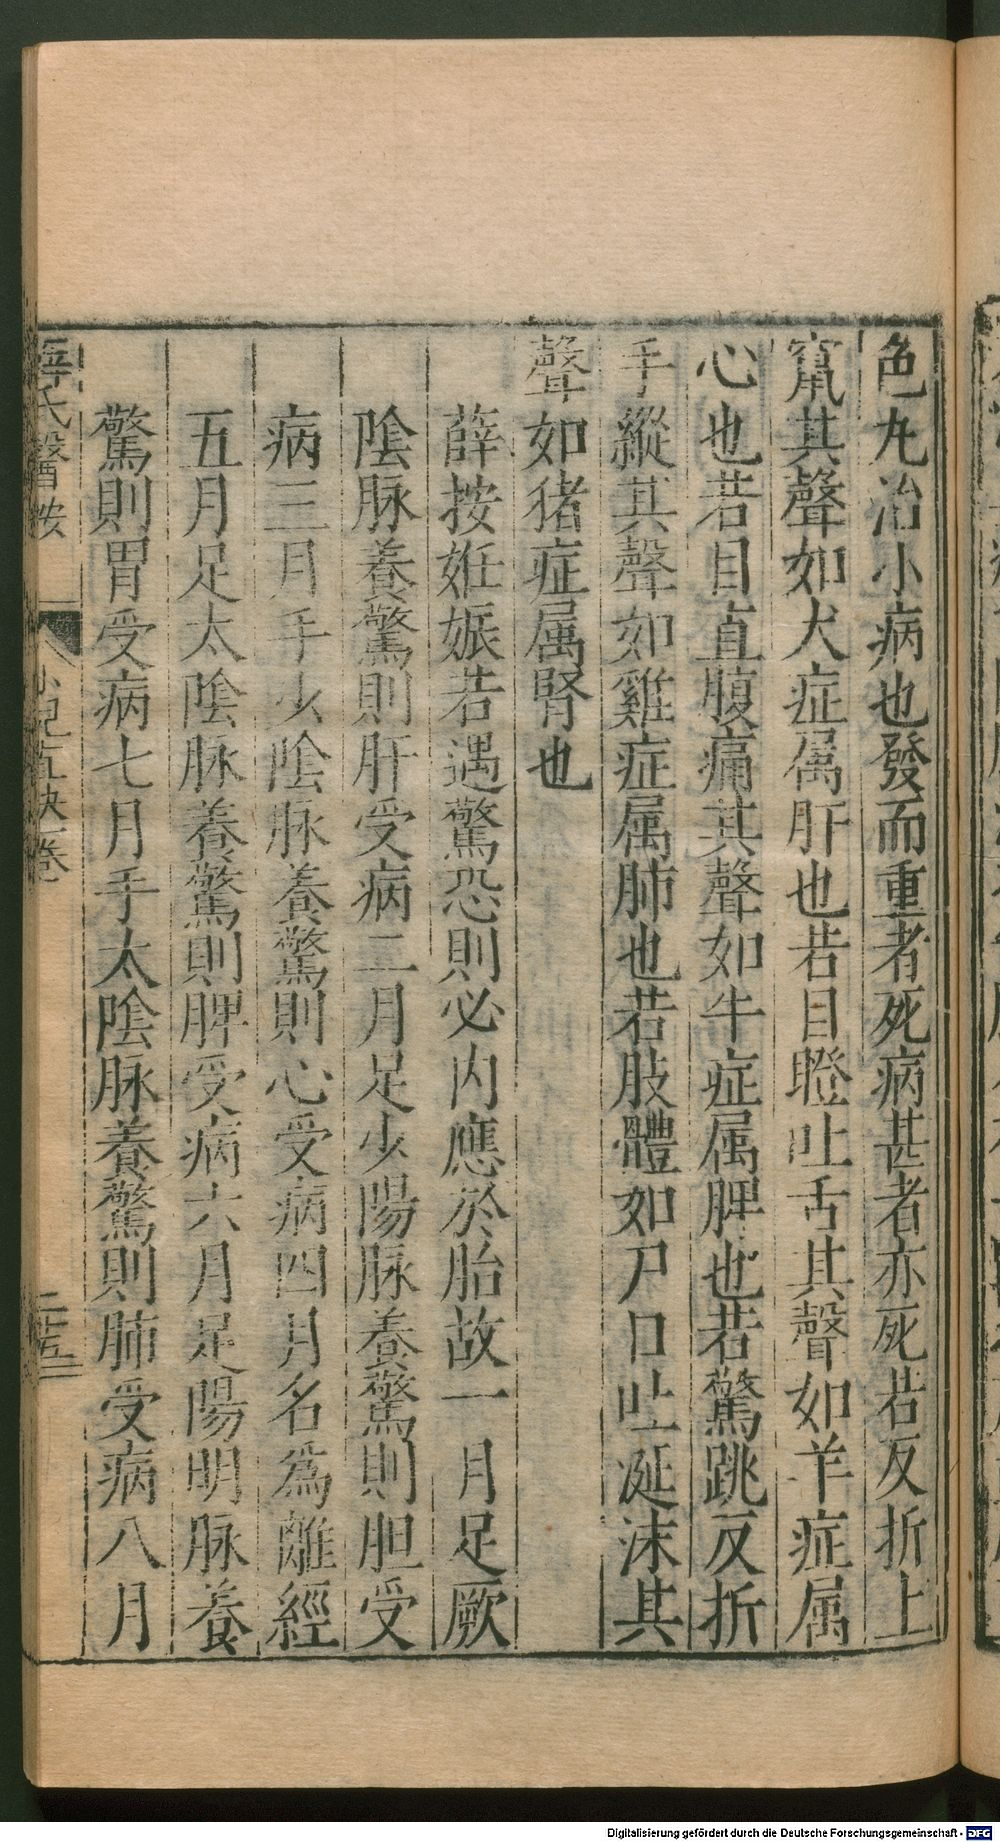 色丸治小病也發而重者死病甚者亦死若反折上
竄其聲如犬症属肝也若目瞪吐舌其聲如羊症属
心也若目直腹痛其聲如牛症属脾也若驚跳反折
手縱其聲如雞症属肺也若肢體如尸口吐涎沫其
聲如猪症属腎也
薛按姙娠若遇驚恐則必内應於胎故一月足厥
陰脉養驚則肝受病二月足少陽脉養驚則胆受
病三月手少陰脉養驚則心受病四月名爲離經
五月足太陰脉養驚則脾受病六月足陽明脉養
驚則胃受病七月手太陰脉養驚則肺受病八月
氏醫按
小兒直訣一卷
Digitalisierung gefördert durch die Deutsche Forschungsgemeinschaft - DFG